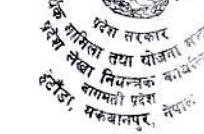 प्रदेश सरकार
र्थिक मामिला तथा योजना मन्
प्रदेश लेखा नियन्त्रक कार्याल
बागमती प्रदेश
हेटौंडा, मकवानपुर, नेपाल